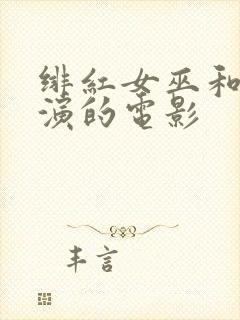 绯紅女巫和
演的電影
丰言